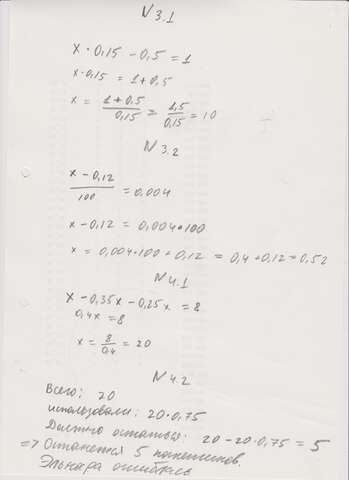 N 3.1
x · 0,15 - 0,5 = 1
x · 0,15 = 1 + 0,5
x = (1 + 0,5)/0,15 = 1,5/0,15 = 10
N 3.2
(x - 0,12)/100 = 0,004
x - 0,12 = 0,004 · 100
x = 0,004 · 100 + 0,12 = 0,4 + 0,12 = 0,52
N 4.1
x - 0,35x - 0,25x = 8
0,4x = 8
x = 8/0,4 = 20
N 4.2
Всего: 20
использовали: 20 · 0,75
Должно остаться: 20 - 20 · 0,75 = 5
=> Останется 5
Эльнара ошиблась